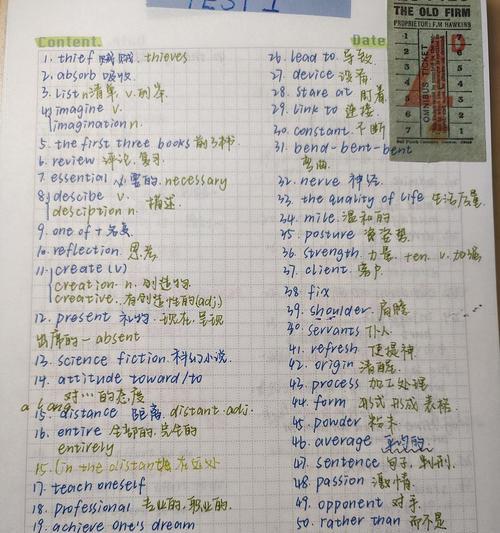 TEST 1
THE OLD FIRM
PROPRIETOR: F.M HAWKINS
OMNIBUS TICKET
Content.
Date
1. thief 贼. thieves
2. absorb 吸收.
3. List n清单 v.列
4. imagine v.
imagination n.
5. the first three books 前3本书
6. review 评论, 复习.
7. essential 必要的. necessary
8. descibe v. 描述
desciption n.
9. one of + 名复
10. reflection 思考
11. create (v)
creation n. 创造物
creative. 有创造性的(adj)
12. present 礼物. 现在, 呈现
出席的 — absent
13. science fiction 科幻小说.
14. attitude toward/to
对…的态度
a long
15. distance 距离. distant adj.
16. entire 全部的, 完全的
entirely
15. (in the distant 在远处
17. teach oneself
18. professional 专业的, 职业的.
19. achieve one's dream
26. lead to 导致
27. device 设备.
28. stare at 盯着
29. link to 连接
30. constant 不断
31. bend-bent-bent
弯曲
32. nerve 神经
33. the quality of life 生活质量.
34. mile. 温和的
35. posture 姿势
36. strength. 力量. +en v. 加强
37. client. 客户
38. fix
39. shoulder. 肩膀
40. servants 仆人
41. refresh 使提神
42. origin 清醒.
43. process 加工处理
44. form 形式 形成 表格.
45. powder 粉末
46. average 平均的.
47. sentence 句子, 判刑.
48. passion 激情
49. opponent 对手.
50. rather than 而不是